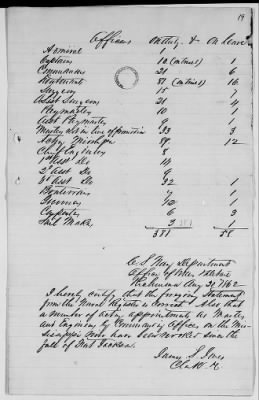 19
Officers On duty & On leave
Admiral 1
Captains 12 (in transit) 1
Commanders 21 6
Lieutenants 81 (in transit) 16
Surgeons 15 7
Asst Surgeons 21 4
Paymasters 10 1
Asst Paymasters 9 1
Masters not in line of promotion 33 3
Actg Midshipn 12
Chief Engineers 8 1
1st Asst Do 14
2d Asst Do 9
3d Asst Do 32 1
Boatswains 7 1
Gunners 10 1
Carpenters 6 3
Sail Makers 3 1
381 58
C. S. Navy Department
Office of Orders & Detail
Richmond Aug 20, 1862
I hereby certify that the foregoing Statement
from the Naval Register is correct. Also that
a number of acting appointments as Masters
and Engineers by Commanding Officers on the Mis-
sissippi River have been revoked since the
fall of
James S. Jones
Clerk